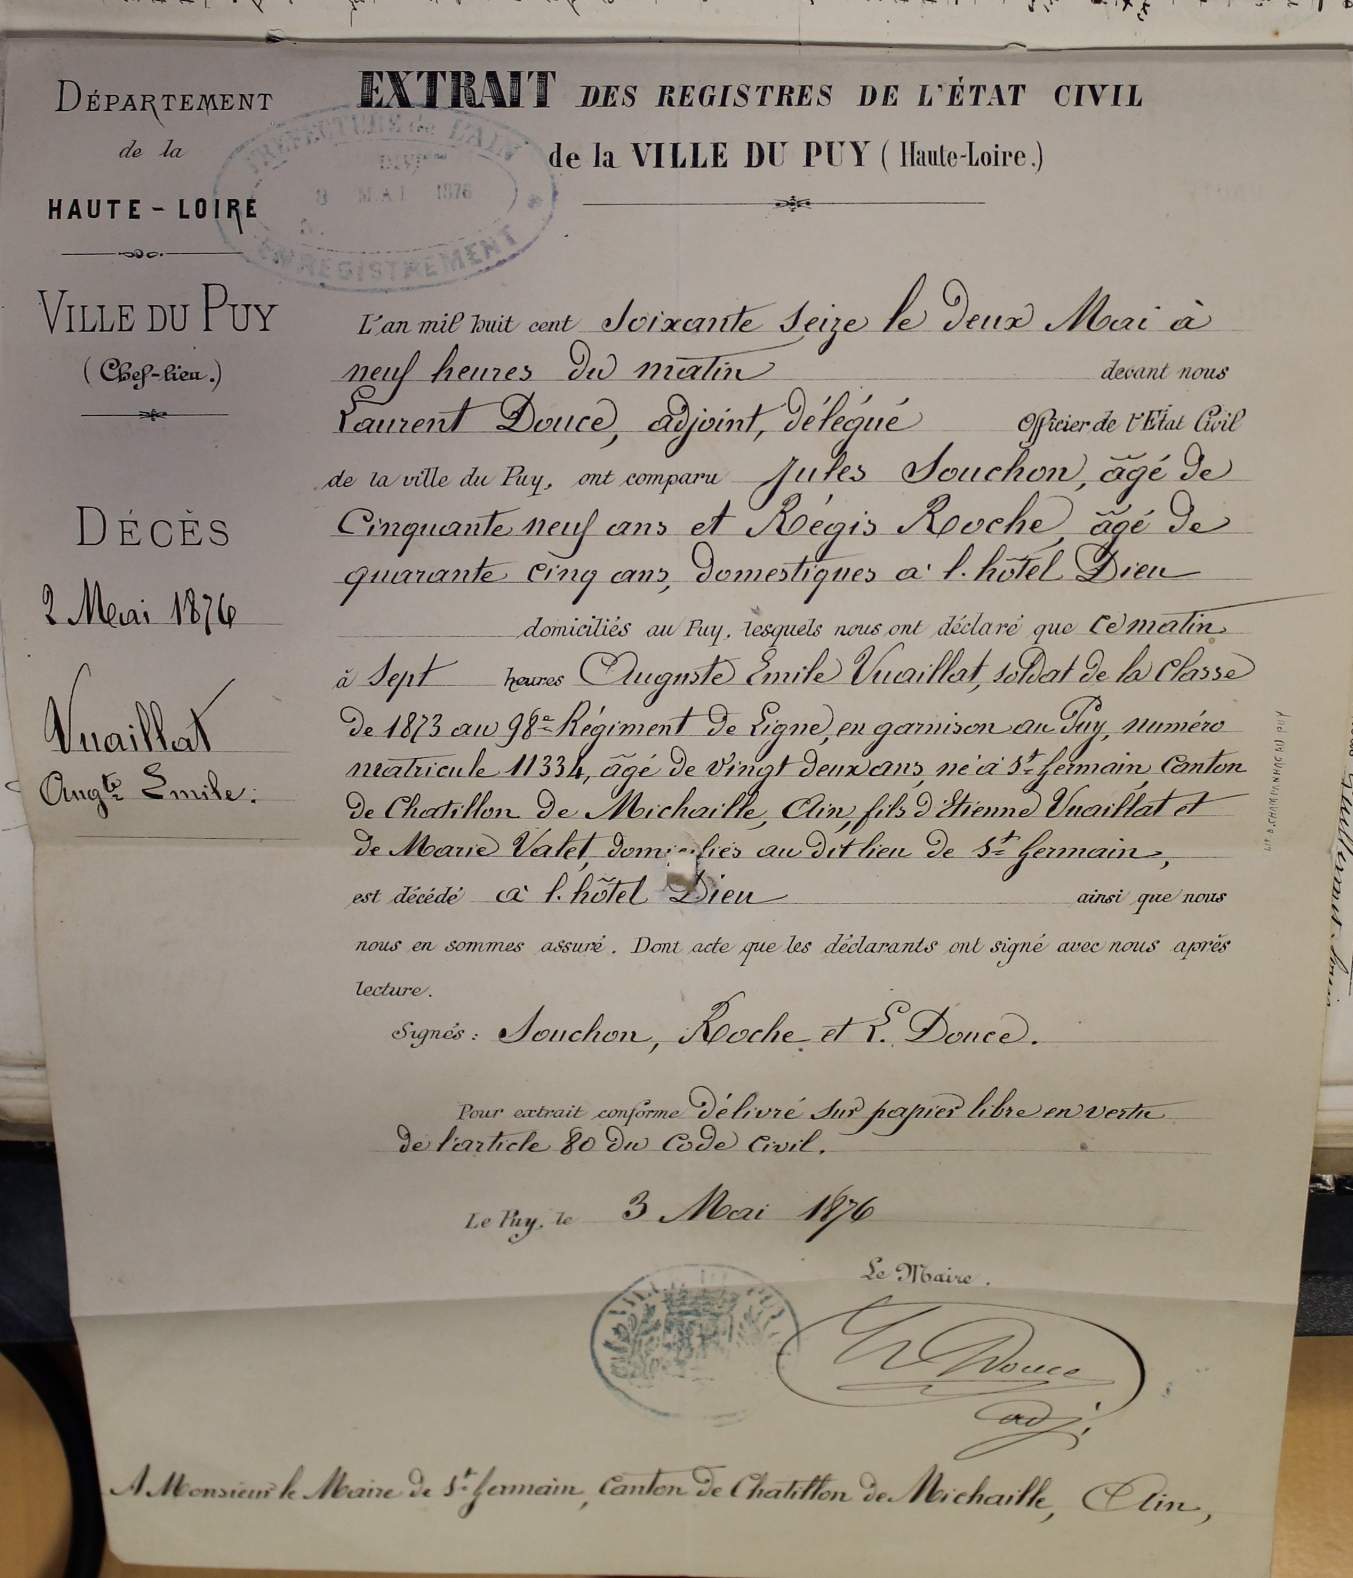 DÉPARTEMENT
de la
HAUTE-LOIRE
VILLE DU PUY
(Chef-lieu.)
DÉCÈS
2 Mai 1876
Vuaillat
Aug.te Emile.
EXTRAIT DES REGISTRES DE L'ÉTAT CIVIL
de la VILLE DU PUY (Haute-Loire.)
PRÉFECTURE de L'AIN
DIVI.on
8 MAI 1876
ENREGISTREMENT
L'an mil huit cent soixante seize le deux Mai à
neuf heures du matin devant nous
Laurent Douce, adjoint, délégué Officier de l'Etat Civil
de la ville du Puy, ont comparu Jules Souchon, âgé de
Cinquante neuf ans et Régis Roche, âgé de
quarante cinq ans, domestiques à l'hôtel Dieu
domiciliés au Puy, lesquels nous ont déclaré que ce matin
à sept heures Auguste Emile Vuaillat, soldat de la classe
de 1873 au 98e Régiment de Ligne, en garnison au Puy, numéro
matricule 11334, âgé de vingt deux ans, né à St Germain, Canton
de Chatillon de Michaille, Ain, fils d'Etienne Vuaillat et
de Marie Valet, domiciliés au dit lieu de St Germain,
est décédé à l'hôtel Dieu ainsi que nous
nous en sommes assuré. Dont acte que les déclarants ont signé avec nous après
lecture.
Signés: Souchon, Roche et L. Douce.
Pour extrait conforme délivré sur papier libre en vertu
de l'article 80 du Code Civil.
Le Puy, le 3 Mai 1876
Le Maire.
Douce
adj.
A Monsieur le Maire de St Germain, Canton de Chatillon de Michaille, Ain,